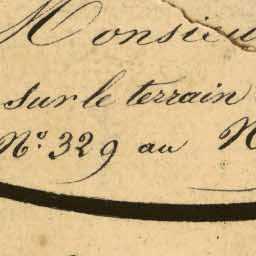 Monsieu
sur le terrain
N.º 329 au N